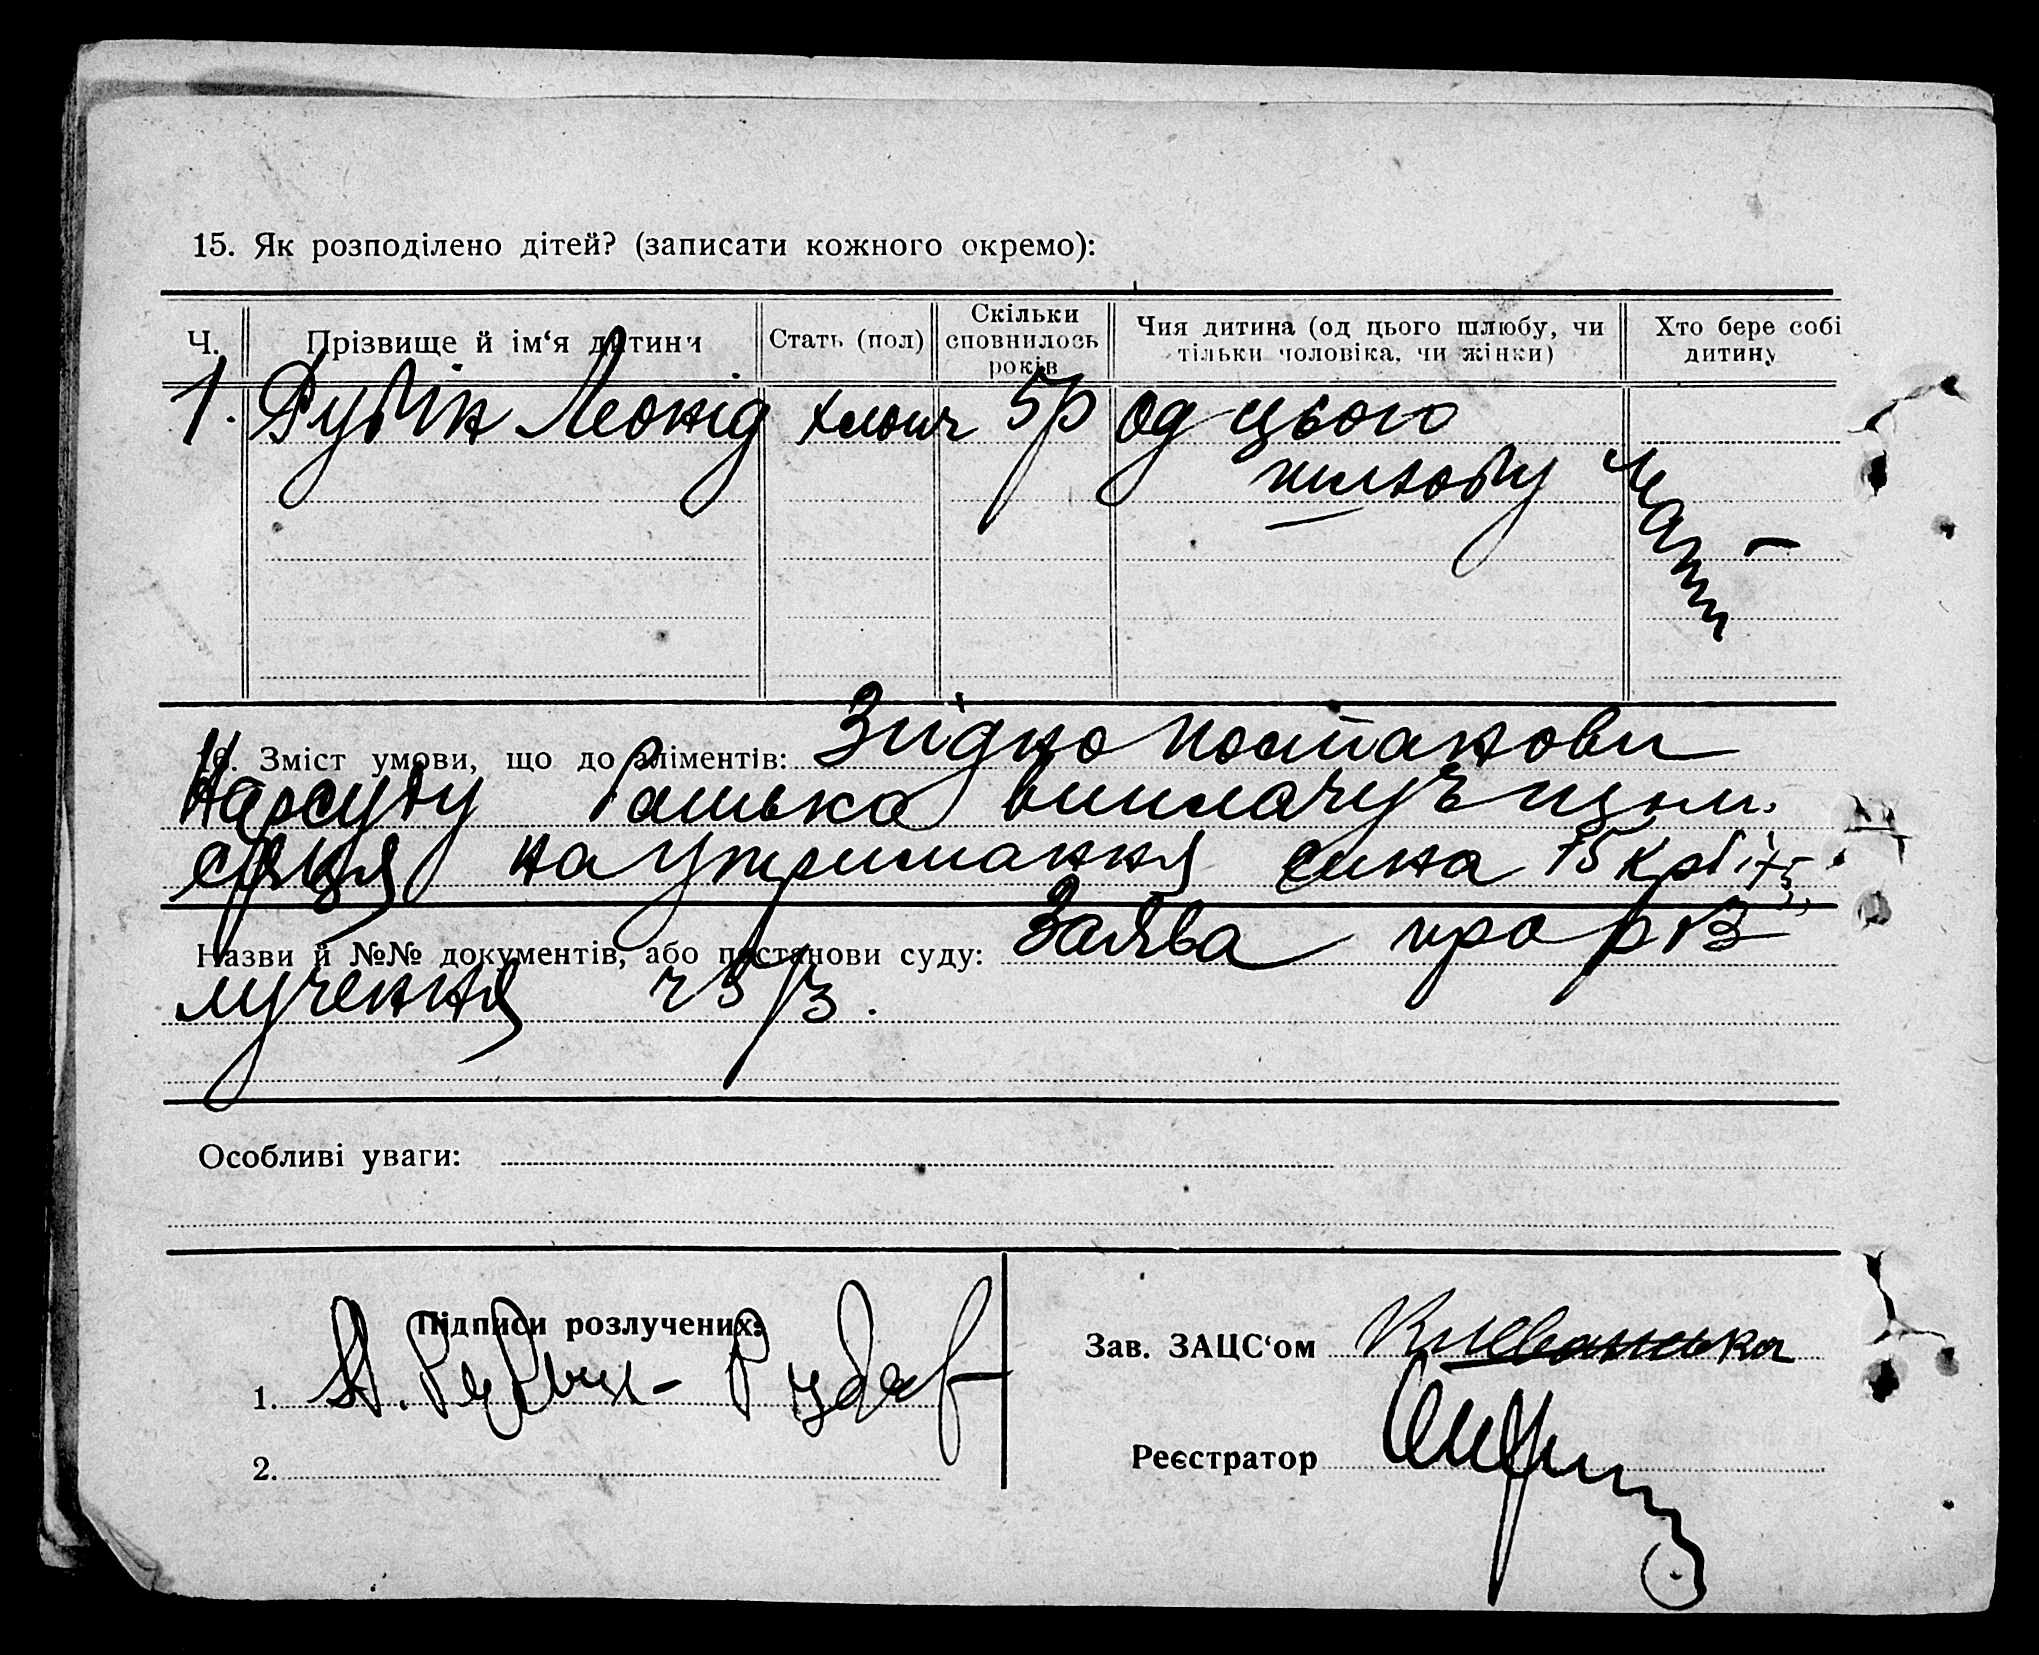 15. Як розподілено дітей? (записати кожного окремо):
Ч. Прізвище й ім‘я дитини Стать (пол) Скільки сповнилось років Чия дитина (од цього шлюбу, чи тільки чоловіка, чи жінки) Хто бере собі дитину
1. Рубін Леонід хлопч 5р од цього
шлюбу мати
16. Зміст умови, що до аліментів: Згідно постанови
Нарсуду батько виплачує щом.
сяця на утримання сина 75 крб
Назви й №№ документів, або постанови суду: Заява про роз
лучення
Особливі уваги:
Підписи розлучених:
1.
2.
Зав. ЗАЦС‘ом
Реєстратор